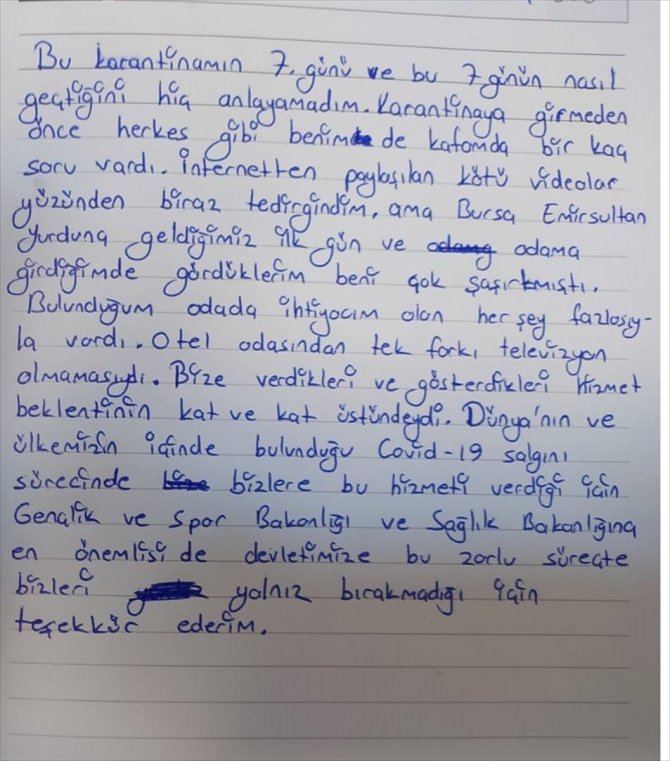 Bu karantinamın 7. günü ve bu 7 günün nasıl
geçtiğini hiç anlayamadım. Karantinaya girmeden
önce herkes gibi benim de kafamda bir kaç
soru vardı. İnternetten paylaşılan kötü videolar
yüzünden biraz tedirgindim, ama Bursa Emirsultan
Yurduna geldiğimiz ilk gün ve odama
girdiğimde gördüklerim beni çok şaşırtmıştı.
Bulunduğum odada ihtiyacım olan her şey fazlasıy-
la vardı. Otel odasından tek farkı televizyon
olmamasıydı. Bize verdikleri ve gösterdikleri hizmet
beklentinin kat ve kat üstündeydi. Dünya'nın ve
ülkemizin içinde bulunduğu Covid-19 salgını
sürecinde bizlere bu hizmeti verdiği için
Gençlik ve Spor Bakanlığı ve Sağlık Bakanlığına
en önemlisi de devletimize bu zorlu süreçte
bizleri yalnız bırakmadığı için
teşekkür ederim.